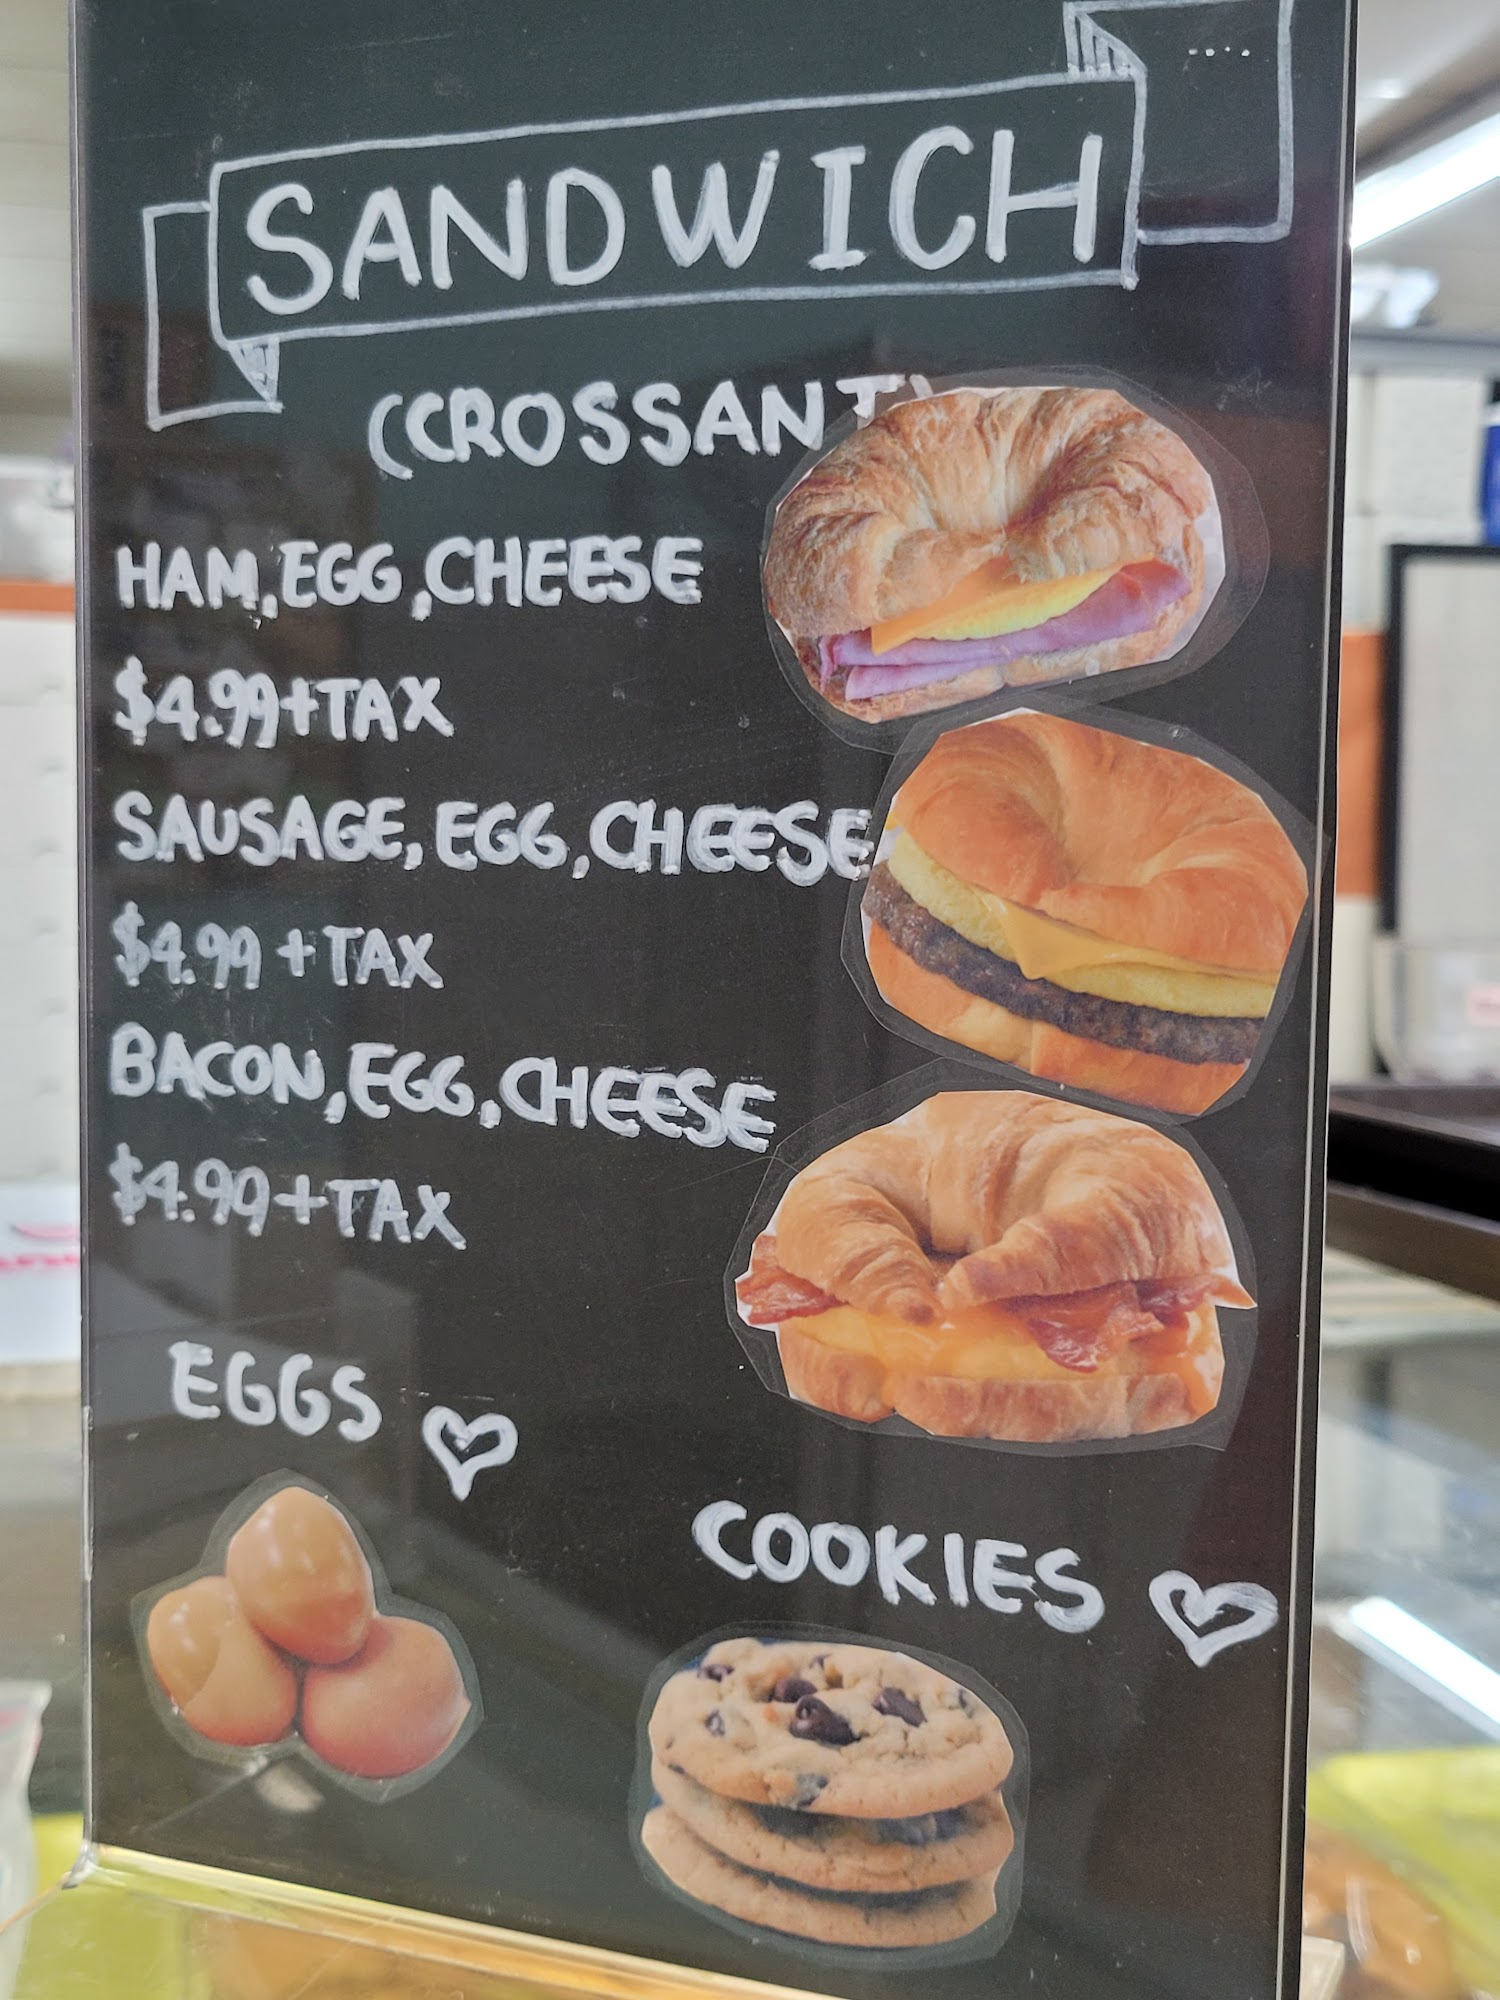 SANDWICH
(CROSSANT)
HAM,EGG,CHEESE
$4.99+TAX
SAUSAGE, EGG,CHEESE
$4.99 +TAX
BACON,EGG,CHEESE
$4.99+TAX
EGGS
COOKIES